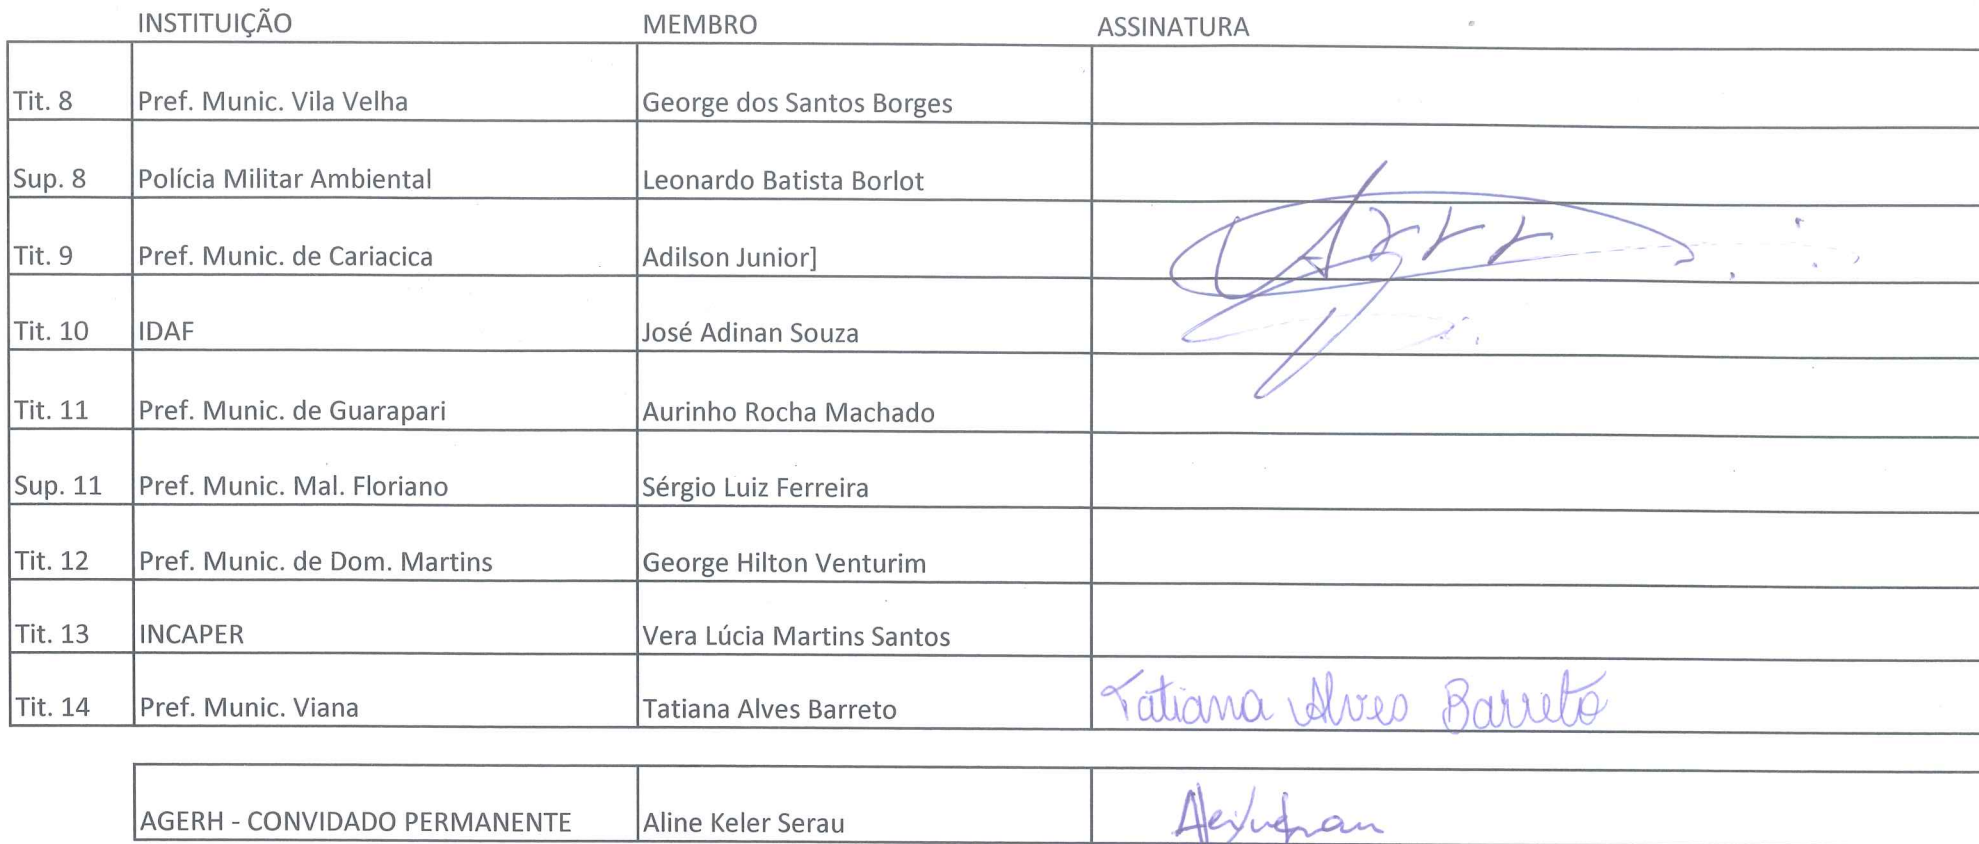 INSTITUIÇÃO MEMBRO ASSINATURA
Tit. 8 Pref. Munic. Vila Velha George dos Santos Borges
Sup. 8 Polícia Militar Ambiental Leonardo Batista Borlot
Tit. 9 Pref. Munic. de Cariacica Adilson Junior]
Tit. 10 IDAF José Adinan Souza
Tit. 11 Pref. Munic. de Guarapari Aurinho Rocha Machado
Sup. 11 Pref. Munic. Mal. Floriano Sérgio Luiz Ferreira
Tit. 12 Pref. Munic. de Dom. Martins George Hilton Venturim
Tit. 13 INCAPER Vera Lúcia Martins Santos
Tit. 14 Pref. Munic. Viana Tatiana Alves Barreto Tatiana Alves Barreto
AGERH - CONVIDADO PERMANENTE Aline Keler Serau